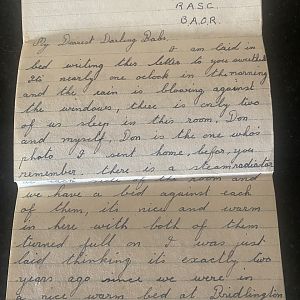 R.A.S.C.
B.A.O.R.
My Dearest Darling Babs.
I am laid in
bed writing this letter to you sweetheart
its nearly one oclock in the morning
and the rain is blowing against
the windows, there is only two
of us sleep in this room, Don
and myself, Don is the one whos
photo I sent home, before, you
remember. there is a steamradiator
the room and
we have a bed against each
of them, its nice and warm
in here with both of them
turned full on I was just
laid thinking its exactly two
years ago since we were in
a nice warm bed at Bridlington